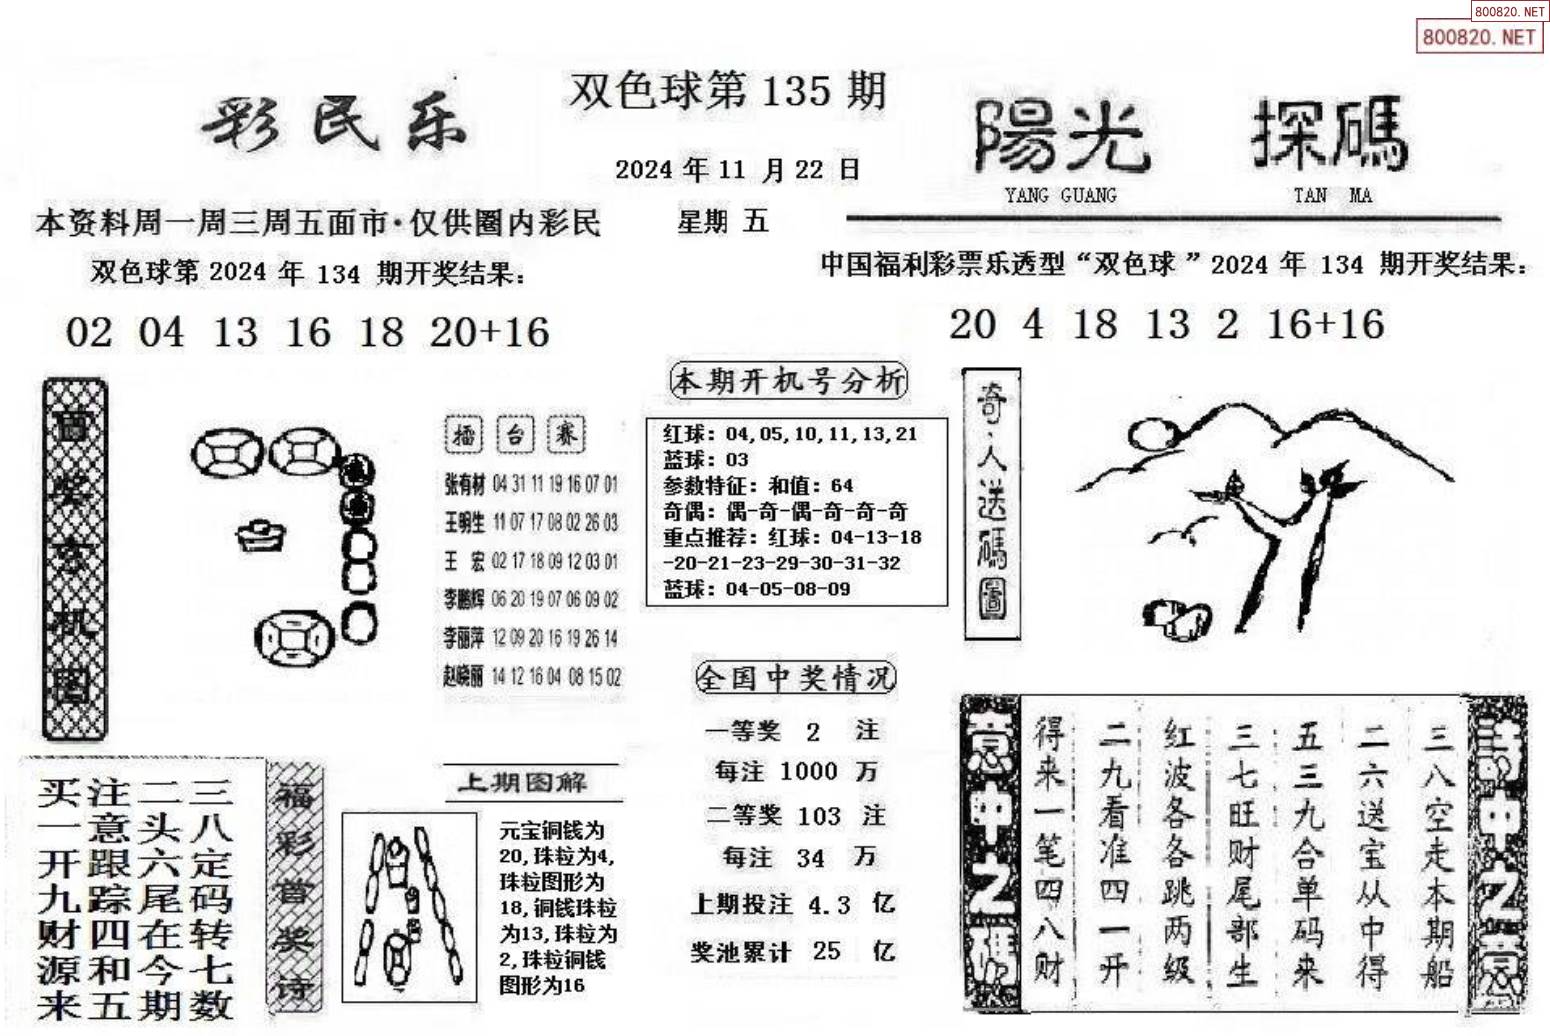 800820.NET
800820.NET
彩民乐
双色球第 135 期
2024 年 11 月 22 日
星期 五
陽光 探碼
YANG GUANG TAN MA
本资料周一周三周五面市·仅供圈内彩民
双色球第 2024 年 134 期开奖结果:
02 04 13 16 18 20+16
中国福利彩票乐透型“双色球”2024 年 134 期开奖结果:
20 4 18 13 2 16+16
擂台赛
张有材 04 31 11 19 16 07 01
王明生 11 07 17 08 02 26 03
王 宏 02 17 18 09 12 03 01
李鹏辉 06 20 19 07 06 09 02
李丽萍 12 09 20 16 19 26 14
赵晓丽 14 12 16 04 08 15 02
本期开机号分析
红球: 04,05,10,11,13,21
蓝球: 03
参数特征: 和值: 64
奇偶: 偶-奇-偶-奇-奇-奇
重点推荐: 红球: 04-13-18
-20-21-23-29-30-31-32
蓝球: 04-05-08-09
奇.人送碼圖
全国中奖情况
一等奖 2 注
每注 1000 万
二等奖 103 注
每注 34 万
上期投注 4.3 亿
奖池累计 25 亿
三八定码转七数
二头六尾在今期
注意跟踪四和五
买一开九财源来
上期图解
元宝铜钱为
20,珠粒为4,
珠粒图形为
18,铜钱珠粒
为13,珠粒为
2,珠粒铜钱
图形为16
三八空走本期船
二六送宝从中得
五三九合单码来
三七旺财尾部生
红波各各跳两级
二九看准四一开
得来一笔四八财